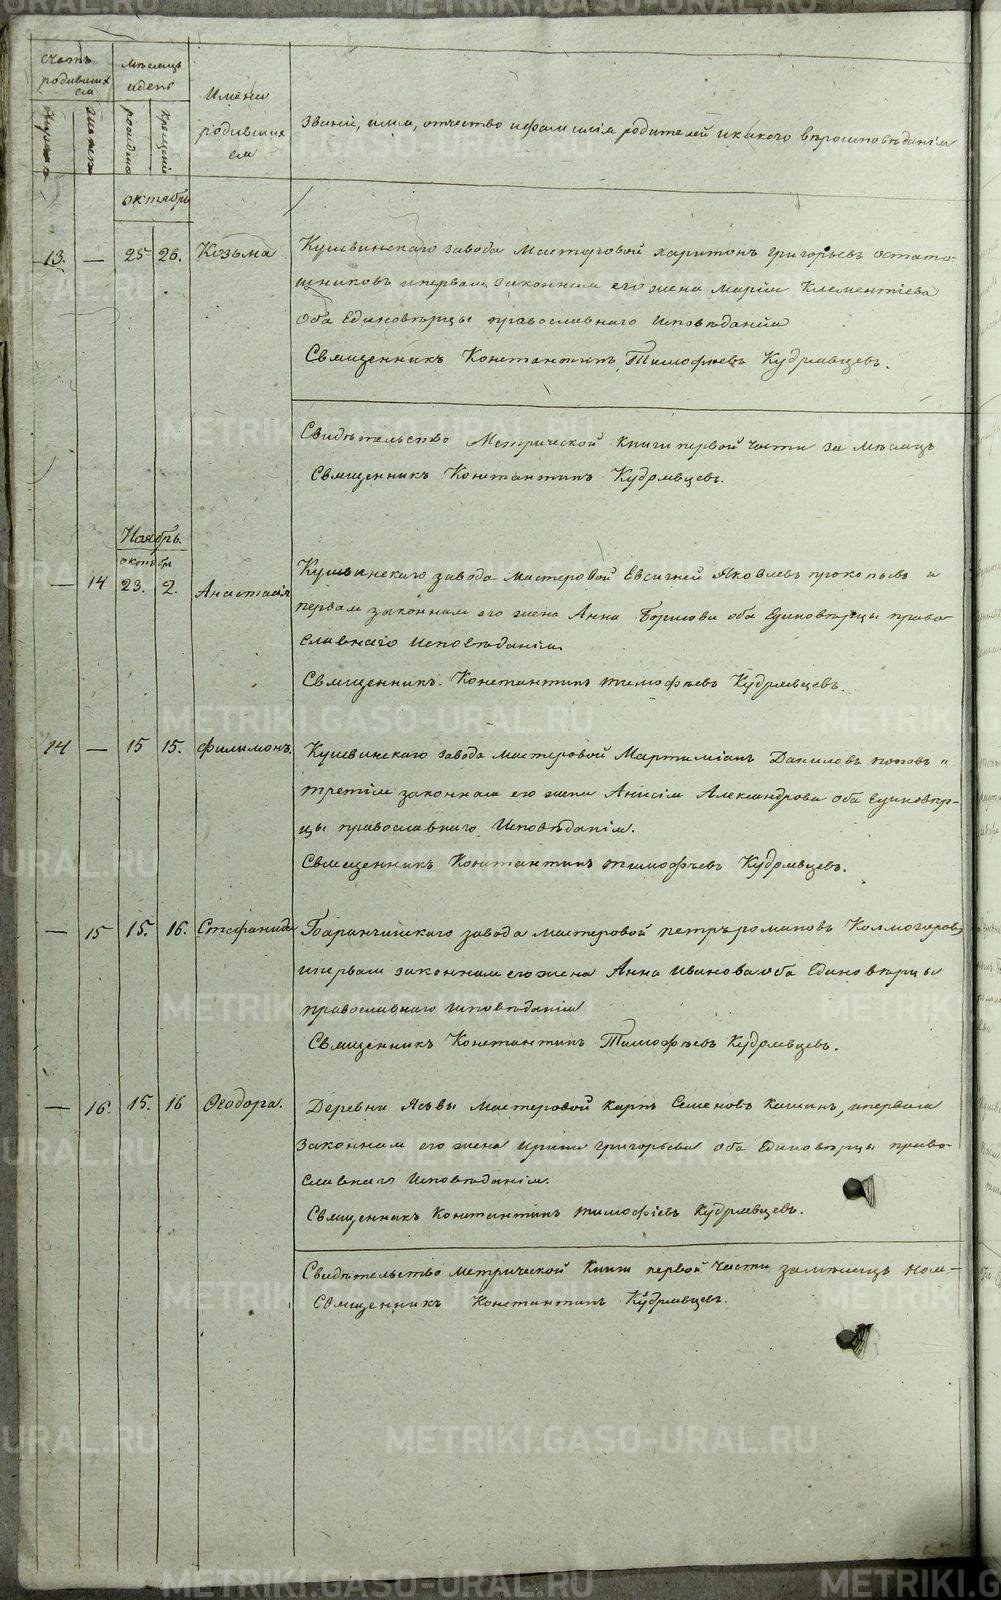 METRIKI.GASO-URAL.RU
Счетъ родившихся
Мѣсяцъ и день
Имена родившихся
Званіе, имя, отчество и фамилія родителей и какого вѣроисповѣданія
рожденія
крещенія
октябрь
13. — 25 26. Козьма
Кушвинскаго завода Мастеровой Харитонъ Григорьевъ Остато-
шниковъ и первая законная его жена Марія Клементіева
Оба Единовѣрцы православнаго Исповѣданія
Священникъ Константинъ Тимофѣевъ Кудрявцевъ.
Свидѣтельство Метрической книги первой части за Мѣсяцъ
Священникъ Константинъ Кудрявцевъ.
Ноябрь.
октябр
— 14 23. 2. Анастасія
Кушвинскаго завода Мастеровой Евсигней Яковлевъ прокопьевъ и
первая законная его жена Анна Борисова оба Единовѣрцы право-
славнаго Исповѣданія
Священникъ Константинъ тимофѣевъ Кудрявцевъ.
14 — 15 15. Филимонъ.
Кушвинскаго завода мастеровой Мартиміанъ Даниловъ поповъ и
третія законная его жена Анисія Александрова оба Единовѣр-
цы православнаго Исповѣданія.
Священникъ Константинъ тимофѣевъ Кудрявцевъ.
— 15 15. 16. Стефанида
Баранчинскаго завода мастеровой петръ романовъ Колмогоровъ
и первая законная его жена Анна Иванова оба Единовѣрцы
православнаго исповѣданія
Священникъ Константинъ Тимофѣевъ Кудрявцевъ.
— 16. 15. 16 Ѳеодора.
Деревни Ясьвы Мастеровой карпъ Семеновъ Кашинъ, и первая
Законная его жена Ирина григорьева оба Единовѣрцы право-
славнаго Исповѣданія.
Священникъ Константинъ тимофіевъ Кудрявцевъ.
Свидѣтельство метрической Книги первой части за мѣсяцъ ноя-
Священникъ Константинъ Кудрявцевъ.